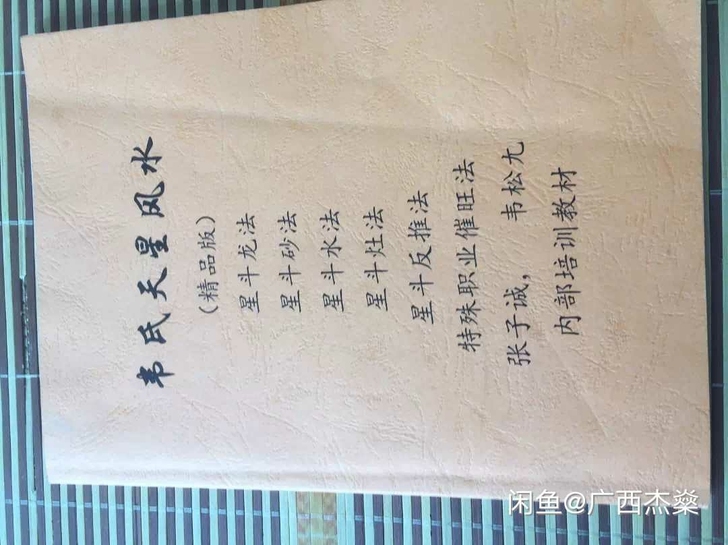 韦氏天星风水
（精品版）
星斗龙法
星斗砂法
星斗水法
星斗灶法
星斗反推法
特殊职业催旺法
张子诚，韦松九
内部培训教材
闲鱼@广西杰燊